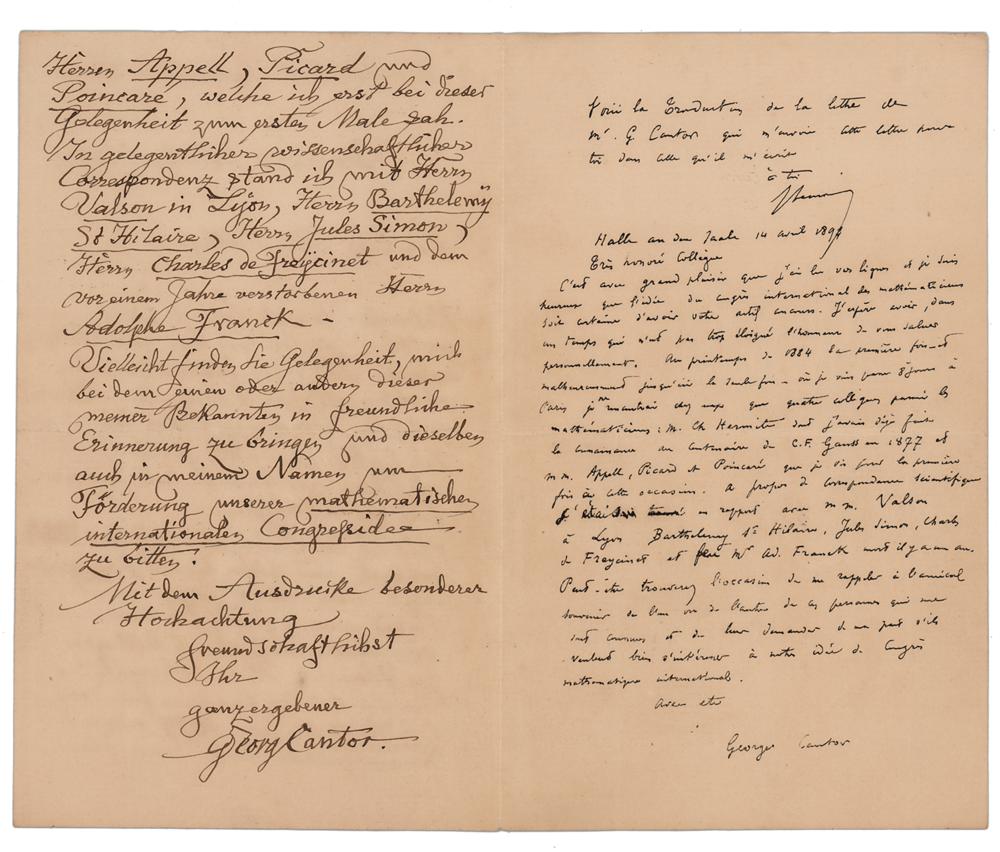 Herren Appell, Picard und
Poincaré, welche ich erst bei dieser
Gelegenheit zum ersten Male sah.
In gelegentlicher wissenschaftlicher
Correspondenz stand ich mit Herrn
Valson in Lÿon, Herrn Barthelemÿ
St Hilaire, Herrn Jules Simon,
Herrn Charles de Freÿcinet und dem
vor einem Jahre verstorbenen Herrn
Adolphe Franck –
Vielleicht finden Sie Gelegenheit, mich
bei dem einen oder andern dieser
meiner Bekannten in freundliche
Erinnerung zu bringen und dieselben
auch in meinem Namen um
Förderung unserer mathematischen
internationalen Congressidee
zu bitten.
Mit dem Ausdrucke besonderer
Hochachtung
freundschaftlichst
Ihr
ganz ergebener
Georg Cantor.
Voici la traduction de la lettre de
Mr. G Cantor qui m'envoie cette lettre pour
toi dans celle qu'il m'écrit
à toi
Halle an der Saale 14 avril 189
Très honoré Collègue
C'est avec grand plaisir que j'ai lu vos lignes et je suis
heureux que l'idée du congrès international des mathématiciens
soit certaine d'avoir votre actif concours. J'espère avoir, dans
un temps qui n'est pas trop éloigné l'honneur de vous saluer
personnellement. Au printemps de 1884 la première fois – et
malheureusement jusqu'ici la seule fois – où je vins passer 8 jours à
Paris je ne rencontrai chez eux que quatre collègues parmi les
mathématiciens : M. Ch Hermite dont j'avais déjà fait
la connaissance au Centenaire de C.F. Gauss en 1877 et
MM. Appell, Picard et Poincaré que je vis pour la première
fois à cette occasion. A propos de correspondance scientifique
j'étais en rapport avec MM. Valson
à Lyon Barthelemy St Hilaire, Jules Simon, Charles
de Freycinet et feu Mr Ad. Franck mort il y a un an.
Peut-être trouverez l'occasion de me rappeler à l'amical
souvenir de l'un ou de l'autre de ces personnes qui me
sont connues et de leur demander de ma part s'ils
veulent bien s'intéresser à notre idée de Congrès
mathématique international.
Avec etc
Georges Cantor